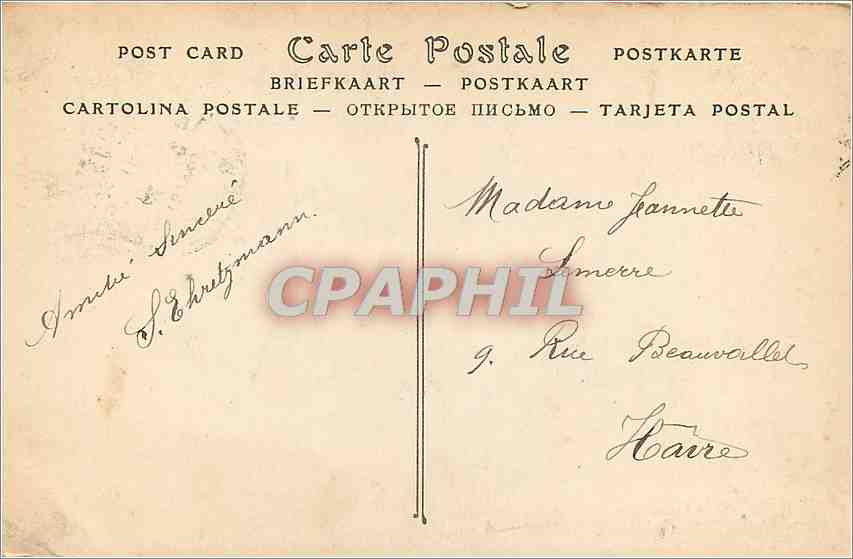 POST CARD Carte Postale POSTKARTE
BRIEFKAART — POSTKAART
CARTOLINA POSTALE — ОТКРЫТОЕ ПИСЬМО — TARJETA POSTAL
Amitié Sincère
S. Ehretzmann.
CPAPHIL
Madame Jeannette
Lemerre
9. Rue Beauvallet
Havre